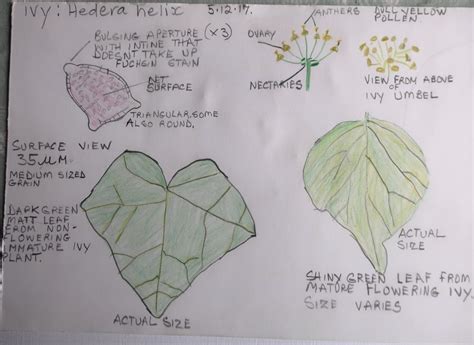 IVY: Hedera helix
5.12.17.
BULGING APERTURE (×3)
WITH INTINE THAT
DOESNT TAKE UP
FUCHSIN STAIN
NET
SURFACE
TRIANGULAR, SOME
ALSO ROUND.
OVARY
ANTHERS
NECTARIES
DULL YELLOW
POLLEN.
VIEW FROM ABOVE
OF
IVY UMBEL
SURFACE VIEW
35µM.
MEDIUM SIZED
GRAIN
DARK GREEN
MATT LEAF
FROM NON-
FLOWERING
IMMATURE IVY
PLANT.
ACTUAL SIZE
ACTUAL
SIZE
SHINY GREEN LEAF FROM
MATURE FLOWERING IVY.
SIZE VARIES